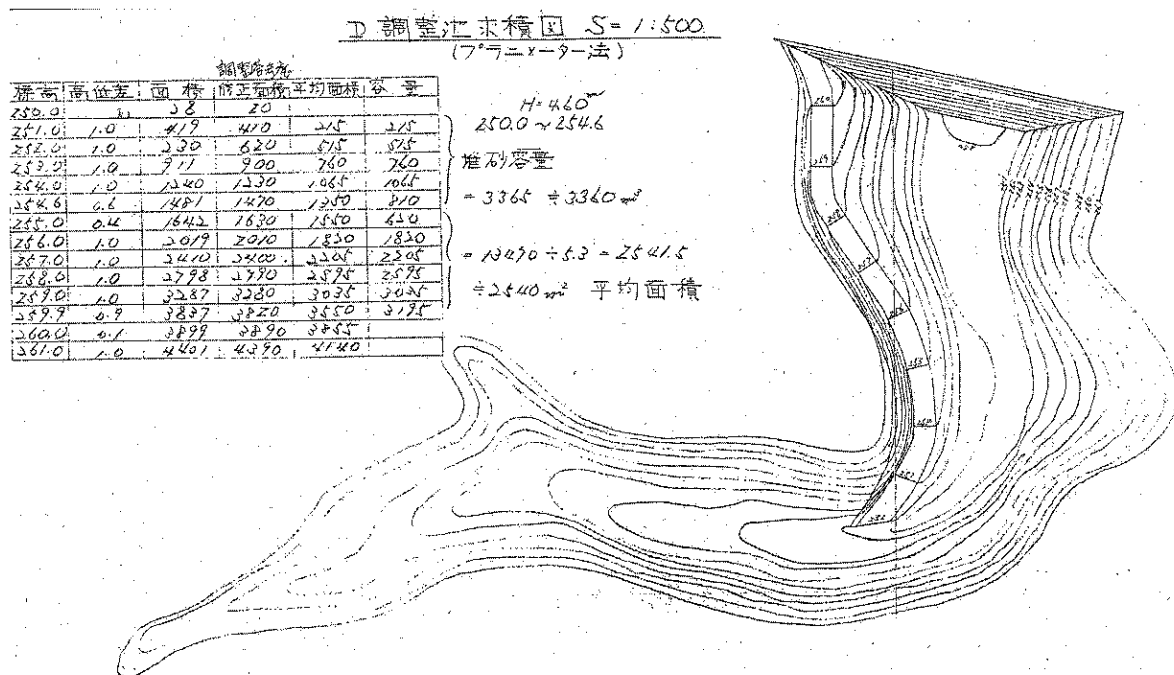 D 調整池求積図 S=1:500
(プラニメーター法)
標高 高低差 面積 修正面積 平均面積 容量
250.0 28 20
251.0 1.0 419 410 215 215
252.0 1.0 230 620 515 515
253.0 1.0 911 900 760 760
254.0 1.0 1240 1230 1065 1065
254.6 0.6 1481 1470 1350 810
255.0 0.4 1642 1630 1550 620
256.0 1.0 2019 2010 1820 1820
257.0 1.0 2410 2400 2205 2205
258.0 1.0 2798 2790 2595 2595
259.0 1.0 3287 3280 3035 3035
259.9 0.9 3837 3820 3550 3195
260.0 0.1 3899 3890 3855
261.0 1.0 4401 4390 4140
H=4.60m
250.0~254.6
堆砂容量
=3365≒3360m³
=13490÷5.3=2541.5
≒2540m² 平均面積